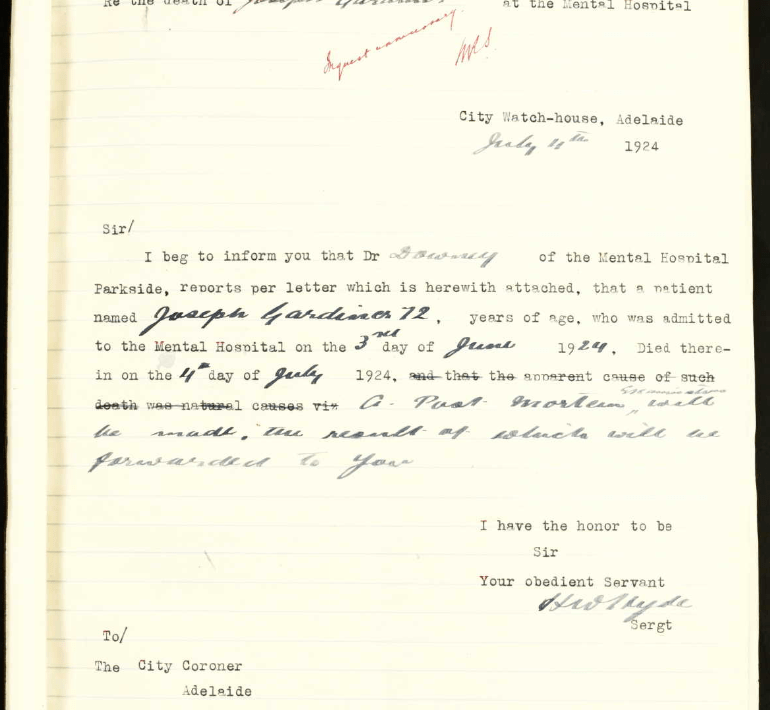 Re the death of Joseph Gardiner. at the Mental Hospital
Inquest unnecessary.
City Watch-house, Adelaide
July 4th 1924
Sir/
I beg to inform you that Dr Downey of the Mental Hospital
Parkside, reports per letter which is herewith attached, that a patient
named Joseph Gardiner 72, years of age, who was admitted
to the Mental Hospital on the 3rd day of June 1924. Died there-
in on the 4th day of July 1924, and that the apparent cause of such
death was natural causes viz A Post Mortem Examination will
be made, the result of which will be
forwarded to you
I have the honor to be
Sir
Your obedient Servant
HW Hyde
Sergt
To/
The City Coroner
Adelaide